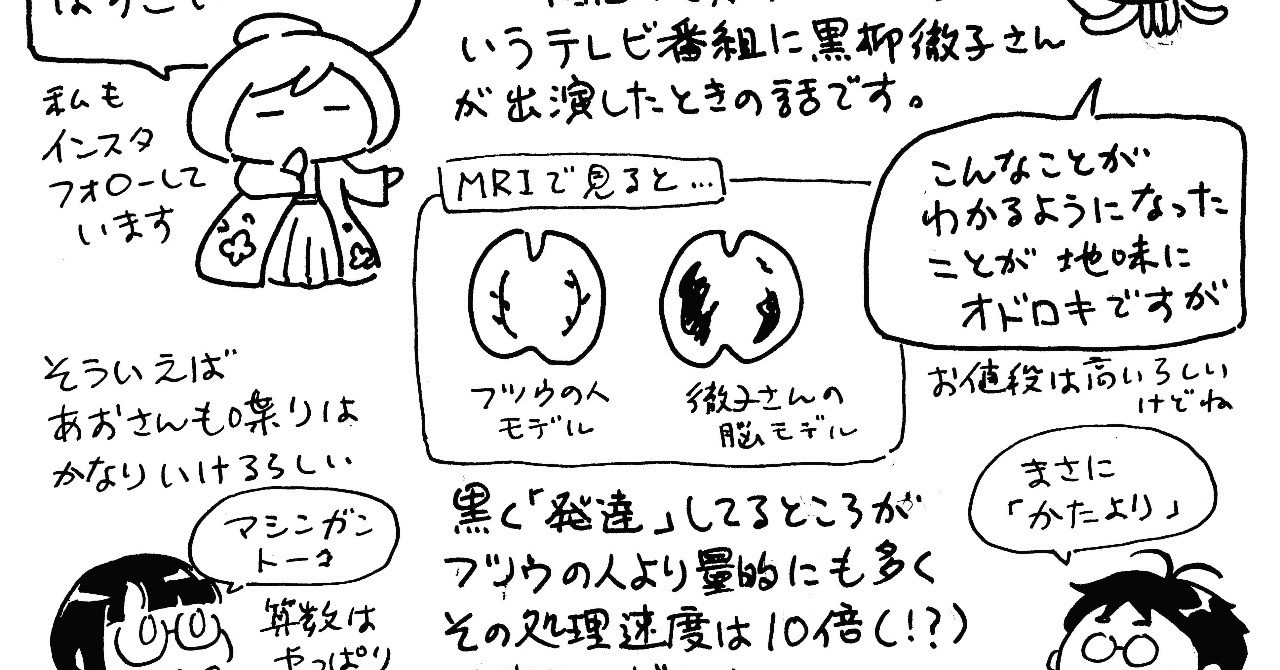 いうテレビ番組に黒柳徹子さん
が出演したときの話です。
私も
インスタ
フォローして
います
MRIで見ると…
フツウの人
モデル
徹子さんの
脳モデル
こんなことが
わかるようになった
ことが地味に
オドロキですが
お値段は高いらしい
けどね
そういえば
あおさんも喋りは
かなりいけるらしい
マシンガン
トーク
算数は
やっぱり
黒く「発達」してるところが
フツウの人より量的にも多く
その処理速度は10倍(!?)
まさに
「かたより」